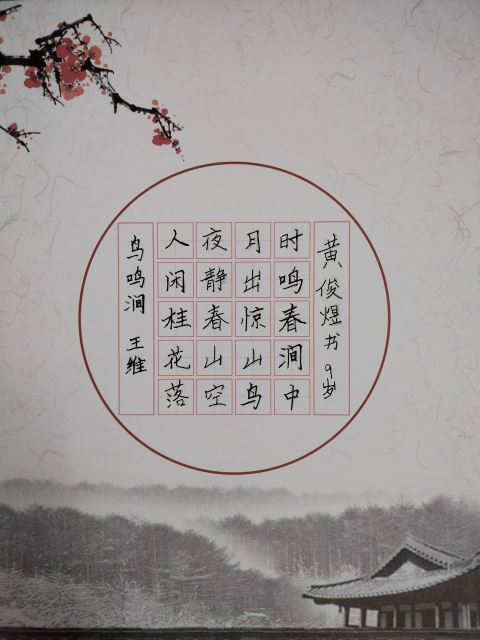 鸟鸣涧 王维
人闲桂花落
夜静春山空
月出惊山鸟
时鸣春涧中
黄俊煜书 9岁